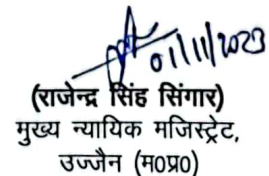 01/11/2023
(राजेन्द्र सिंह सिंगार)
मुख्य न्यायिक मजिस्ट्रेट,
उज्जैन (म0प्र0)